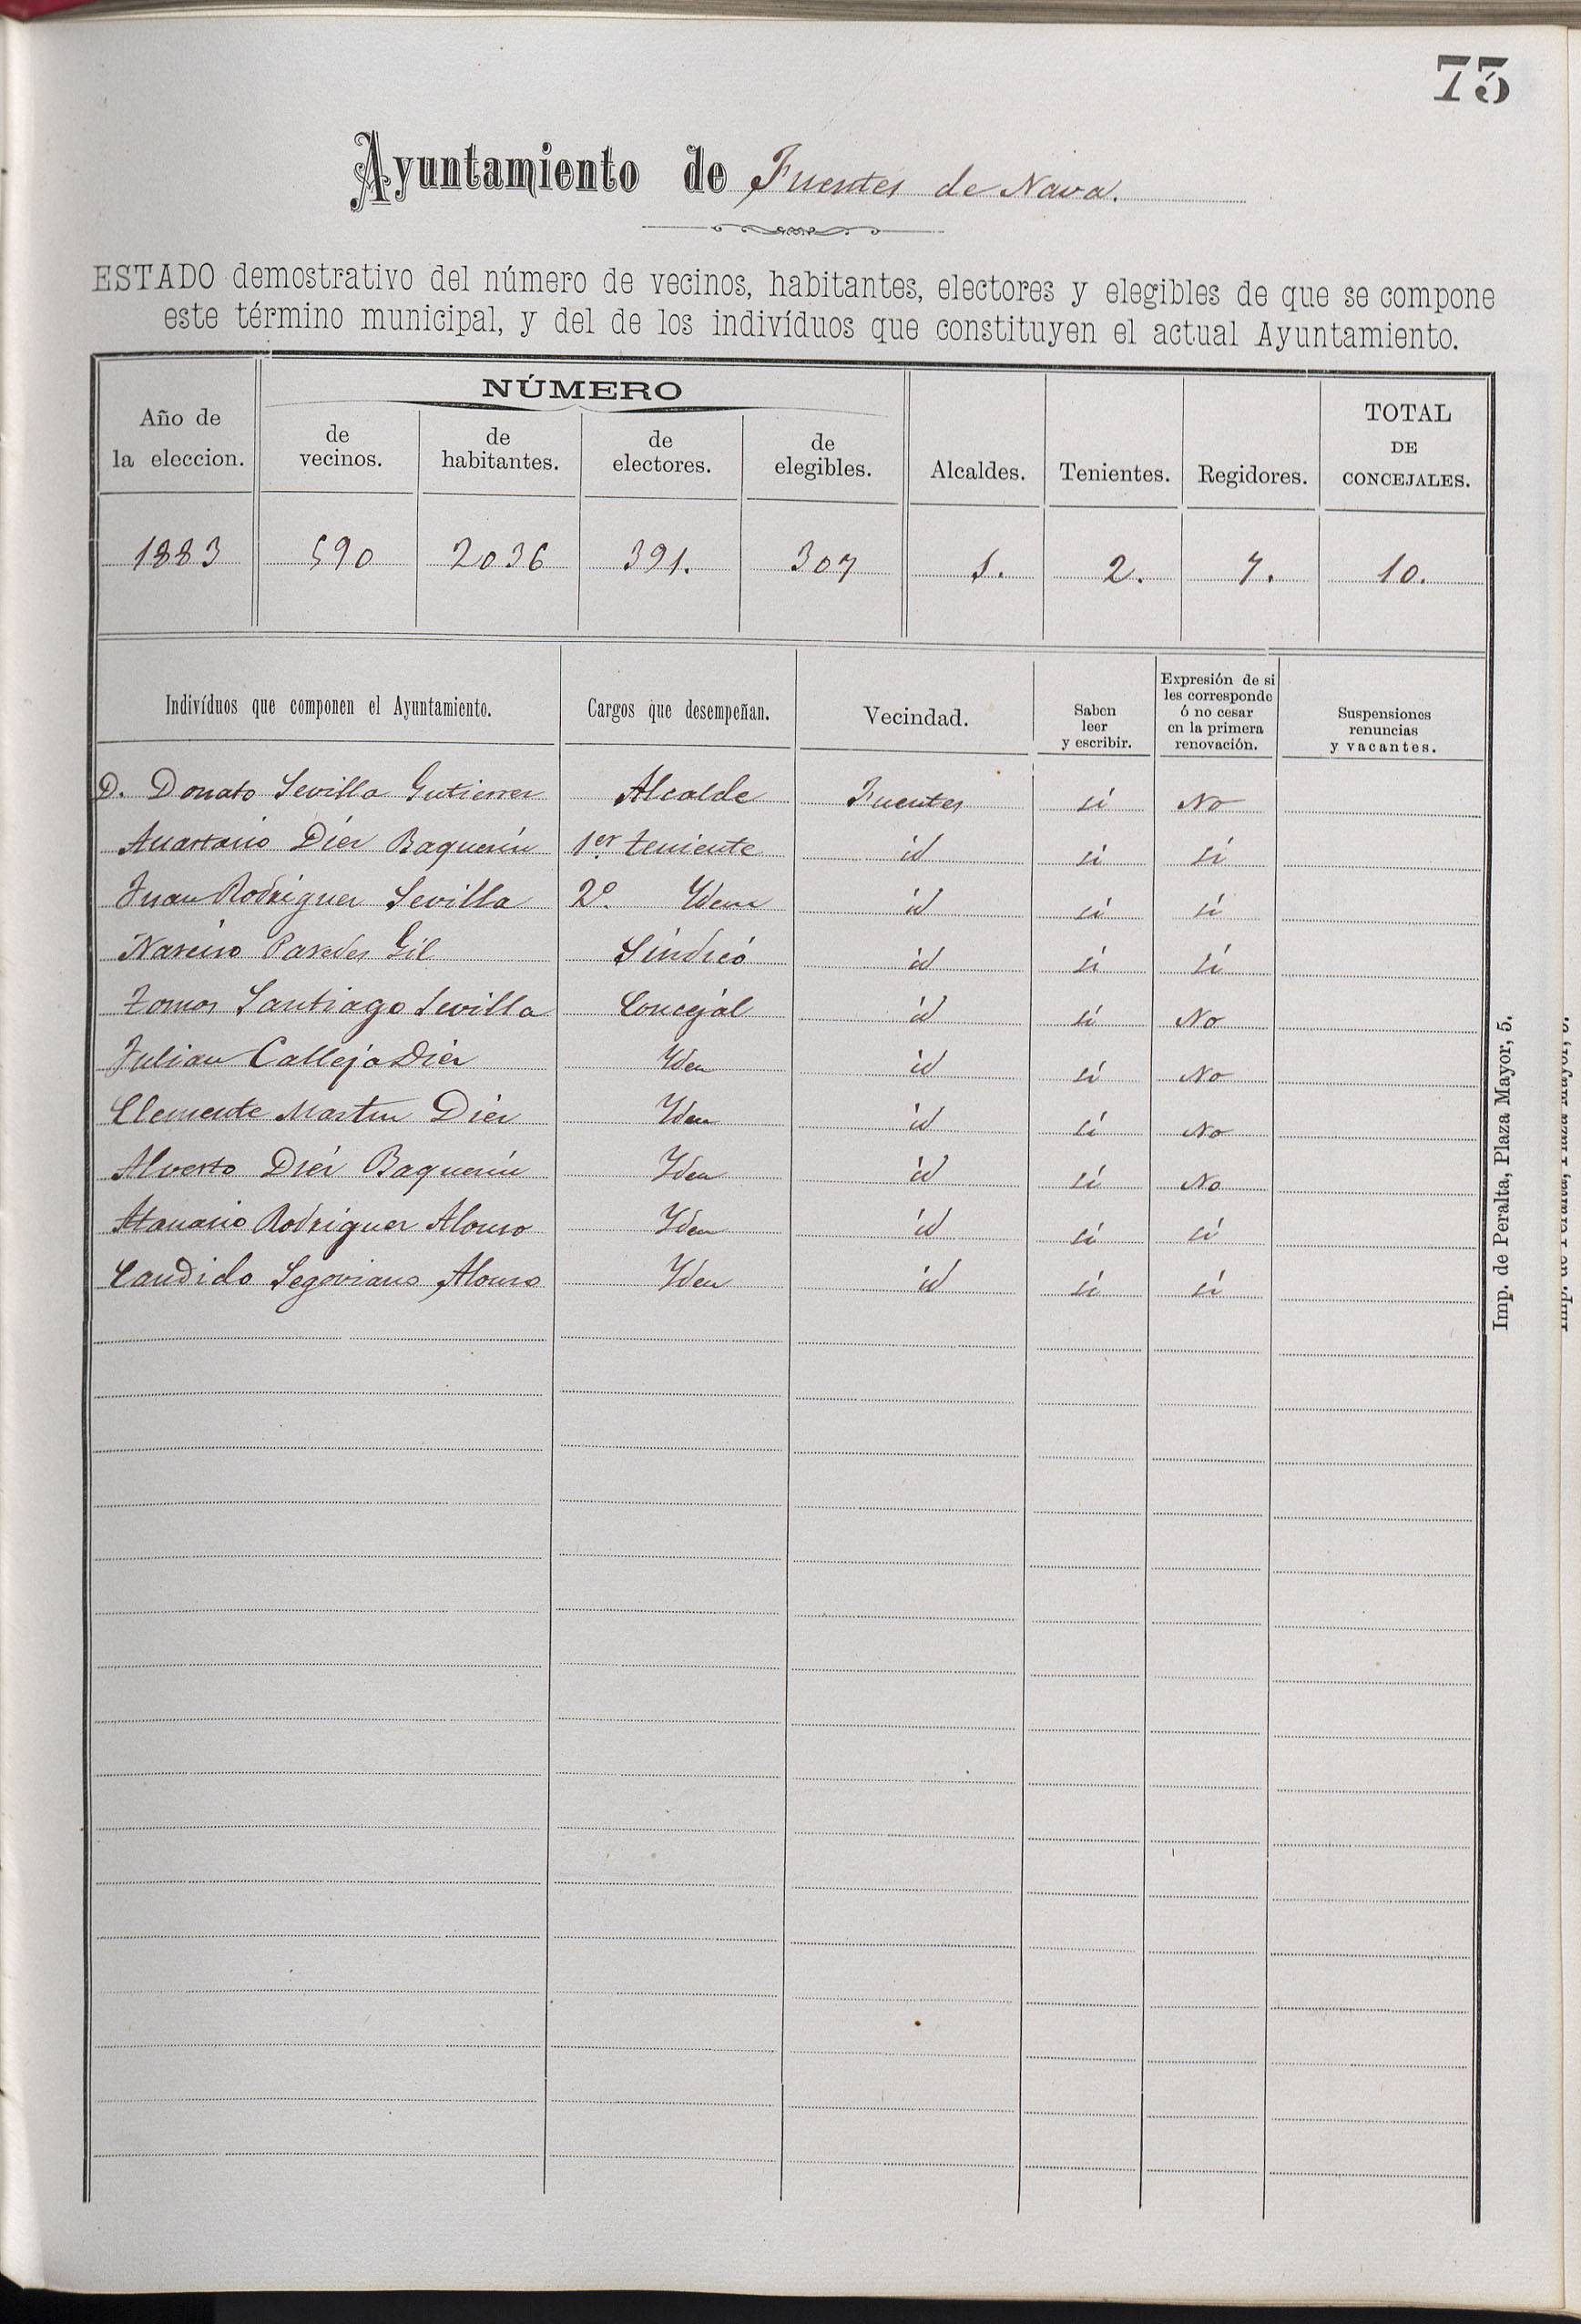 73
Ayuntamiento de Fuentes de Nava.
ESTADO demostrativo del número de vecinos, habitantes, electores y elegibles de que se compone
este término municipal, y del de los indivíduos que constituyen el actual Ayuntamiento.
Año de la eleccion. NÚMERO de vecinos. de habitantes. de electores. de elegibles. Alcaldes. Tenientes. Regidores. TOTAL DE CONCEJALES.
1883 590 2036 391. 307 1. 2. 7. 10.
Indivíduos que componen el Ayuntamiento. Cargos que desempeñan. Vecindad. Saben leer y escribir. Expresión de si les corresponde ó no cesar en la primera renovación. Suspensiones renuncias y vacantes.
D. Donato Sevilla Gutierrez Alcalde Fuentes si No
Anastasio Diéz Baquerín 1er. teniente id si si
Juan Rodriguez Sevilla 2º. Ydem id si si
Narciso Paredes Gil Síndicó id si si
Tomas Santiago Sevilla Concejál id si No
Julian Callejo Diéz Yden id si No
Clemente Martin Diéz Yden id si No
Alverto Diéz Baquerín Yden id si No
Atanasio Rodriguez Alonso Yden id si si
Candido Segoviano Alonso Yden id si si
Imp. de Peralta, Plaza Mayor, 5.
Imp. de Peralta, Plaza Mayor, 5.